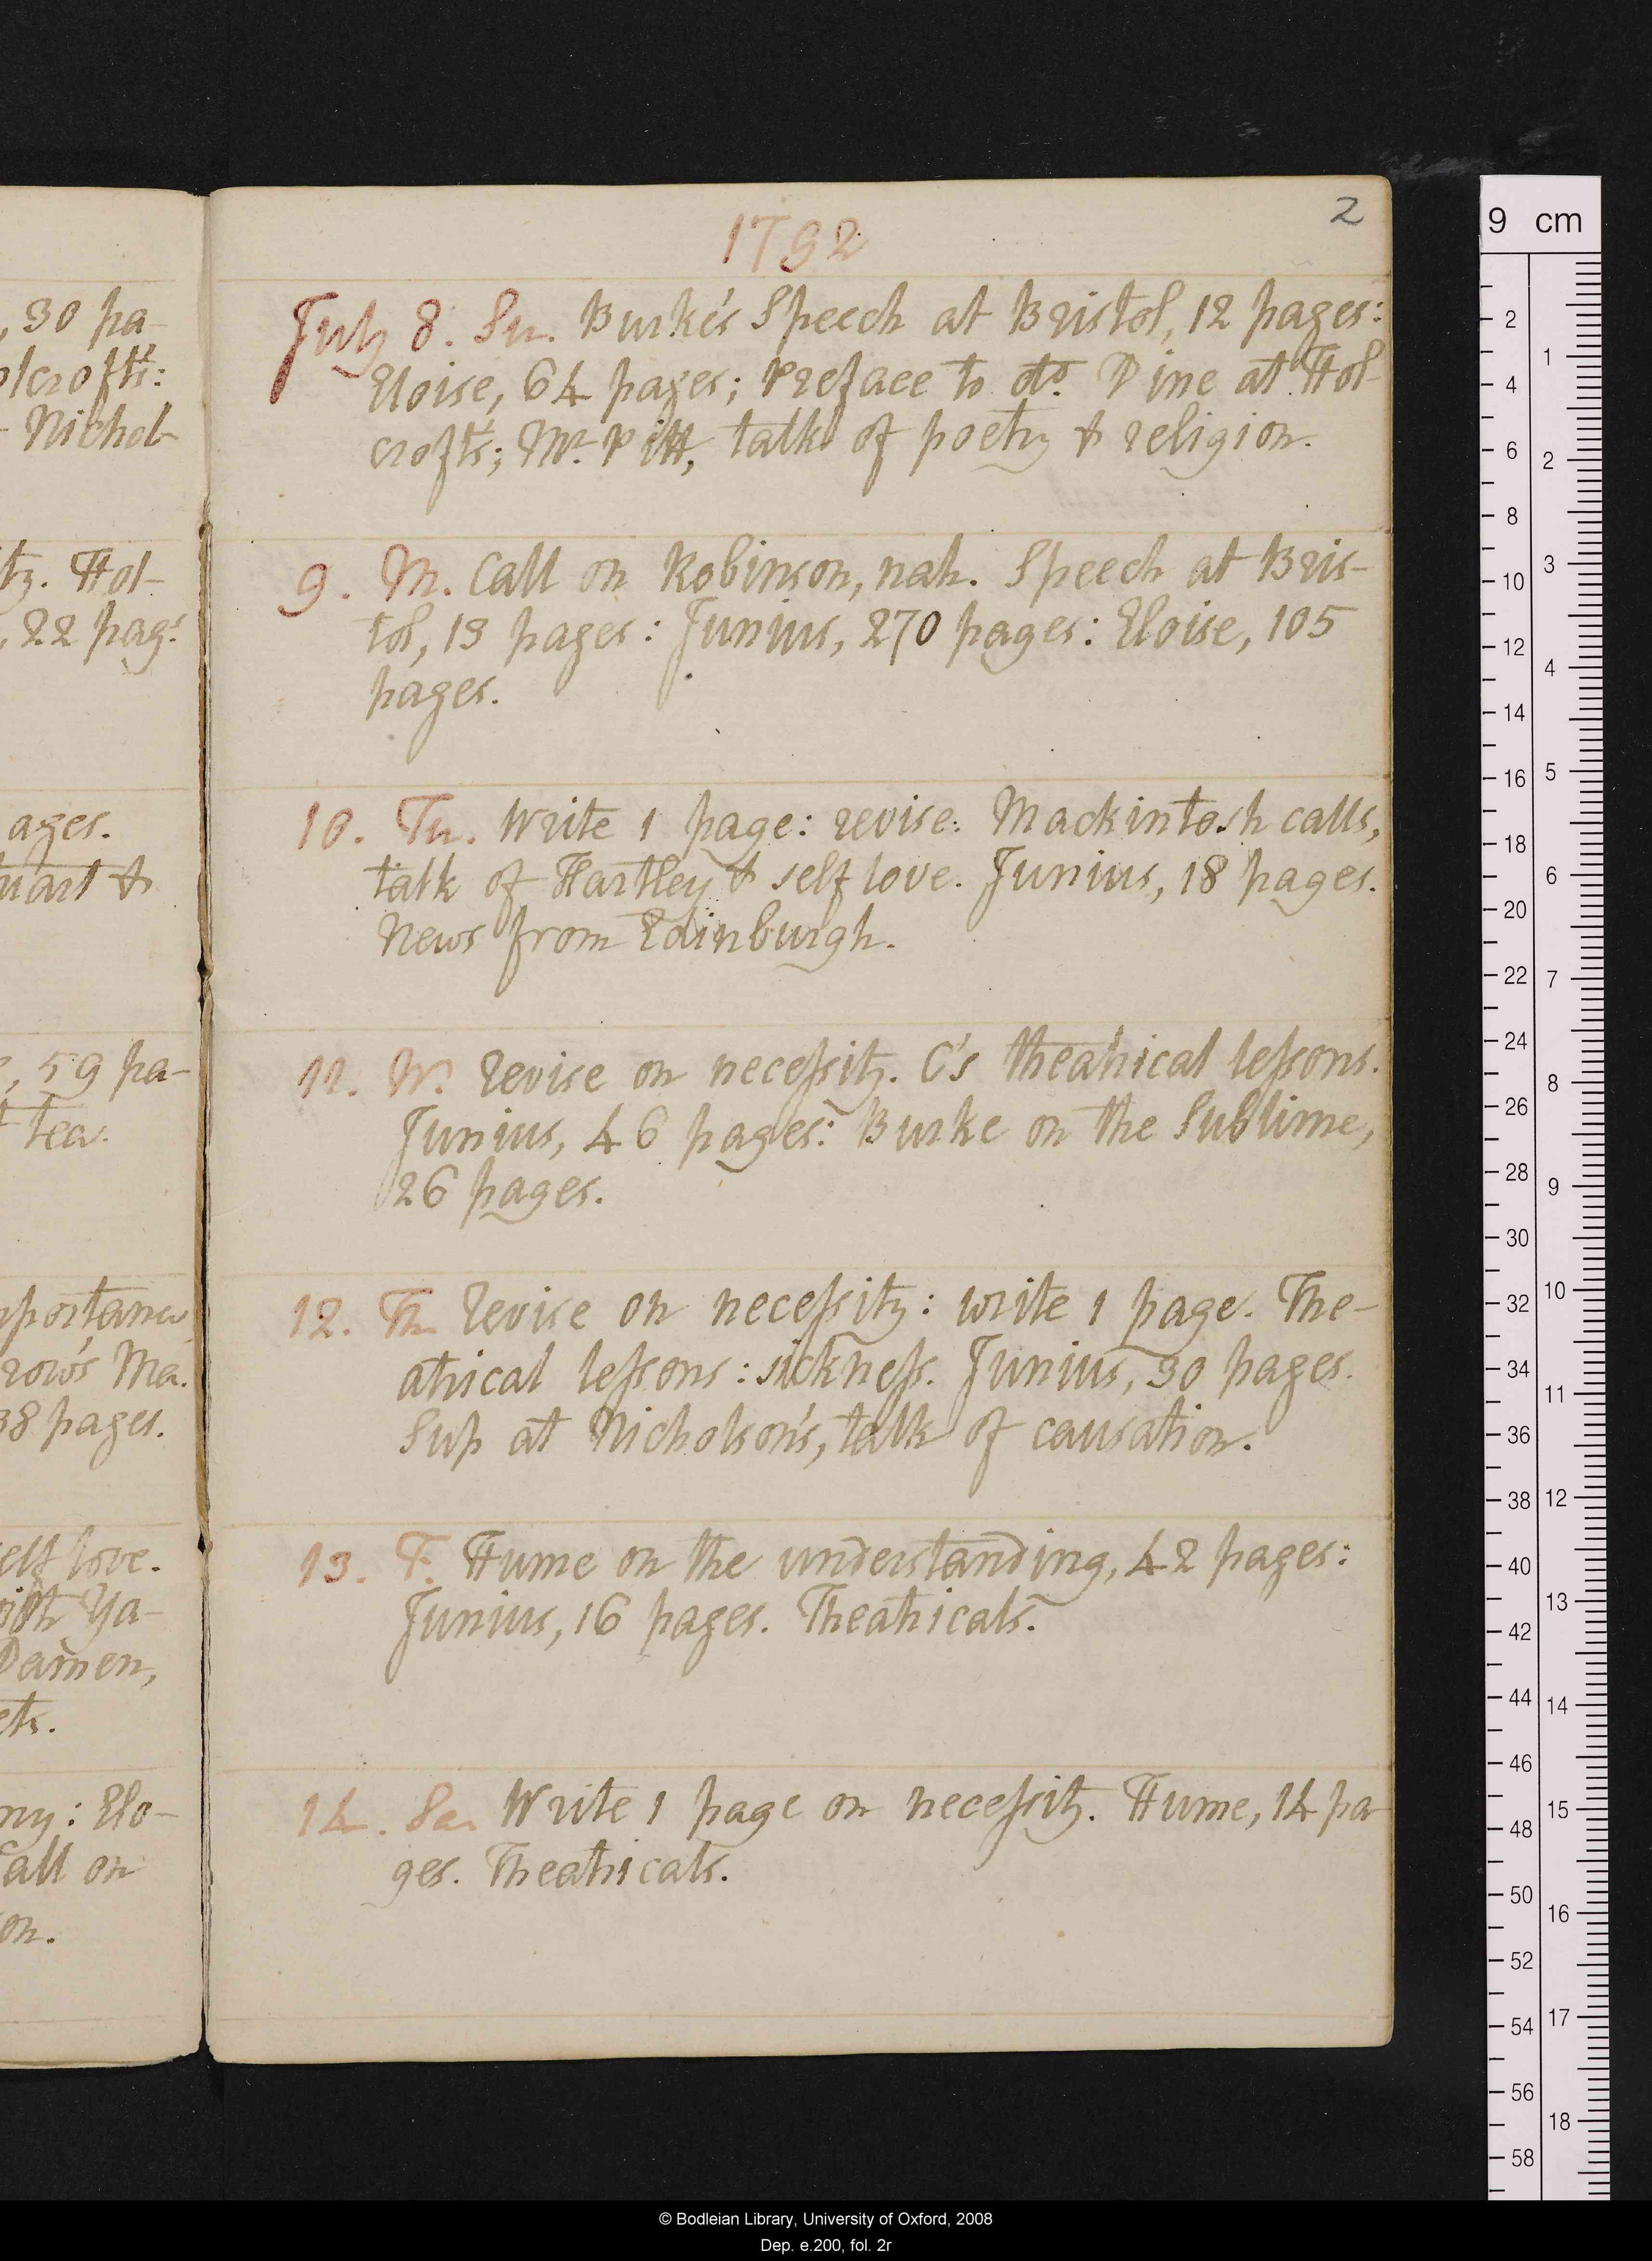 , 30 pa-
olcroft's:
Nichol-
ty. Hol-
, 22 pags
ages.
uart &
, 59 pa-
tea.
mportance,
row's Ma.
38 pages.
self love.
with Ya-
Damen,
ets.
ny: Elo-
Call on
on.
2
1792
July 8. Su. Burke's Speech at Bristol, 12 pages:
Eloise, 64 pages; Preface to do. Dine at Hol-
croft's; Mr. Pitt, talk of poetry & religion.
9. M. Call on Robinson, nah. Speech at Bris-
tol, 13 pages: Junius, 270 pages: Eloise, 105
pages.
10. Tu. Write 1 page: revise. Mackintosh calls,
talk of Hartley & self love. Junius, 18 pages.
News from Edinburgh.
11. W. Revise on necessity. C's theatrical lessons.
Junius, 46 pages: Burke on the Sublime,
26 pages.
12. Th. Revise on necessity: write 1 page. The-
atrical lessons: sickness. Junius, 30 pages.
Sup at Nicholson's, talk of causation.
13. F. Hume on the understanding, 42 pages:
Junius, 16 pages. Theatricals.
14. Sa. Write 1 page on necessity. Hume, 14 pa-
ges. Theatricals.
9 cm
2 4 6 8 10 12 14 16 18 20 22 24 26 28 30 32 34 36 38 40 42 44 46 48 50 52 54 56 58
1 2 3 4 5 6 7 8 9 10 11 12 13 14 15 16 17 18
© Bodleian Library, University of Oxford, 2008
Dep. e.200, fol. 2r